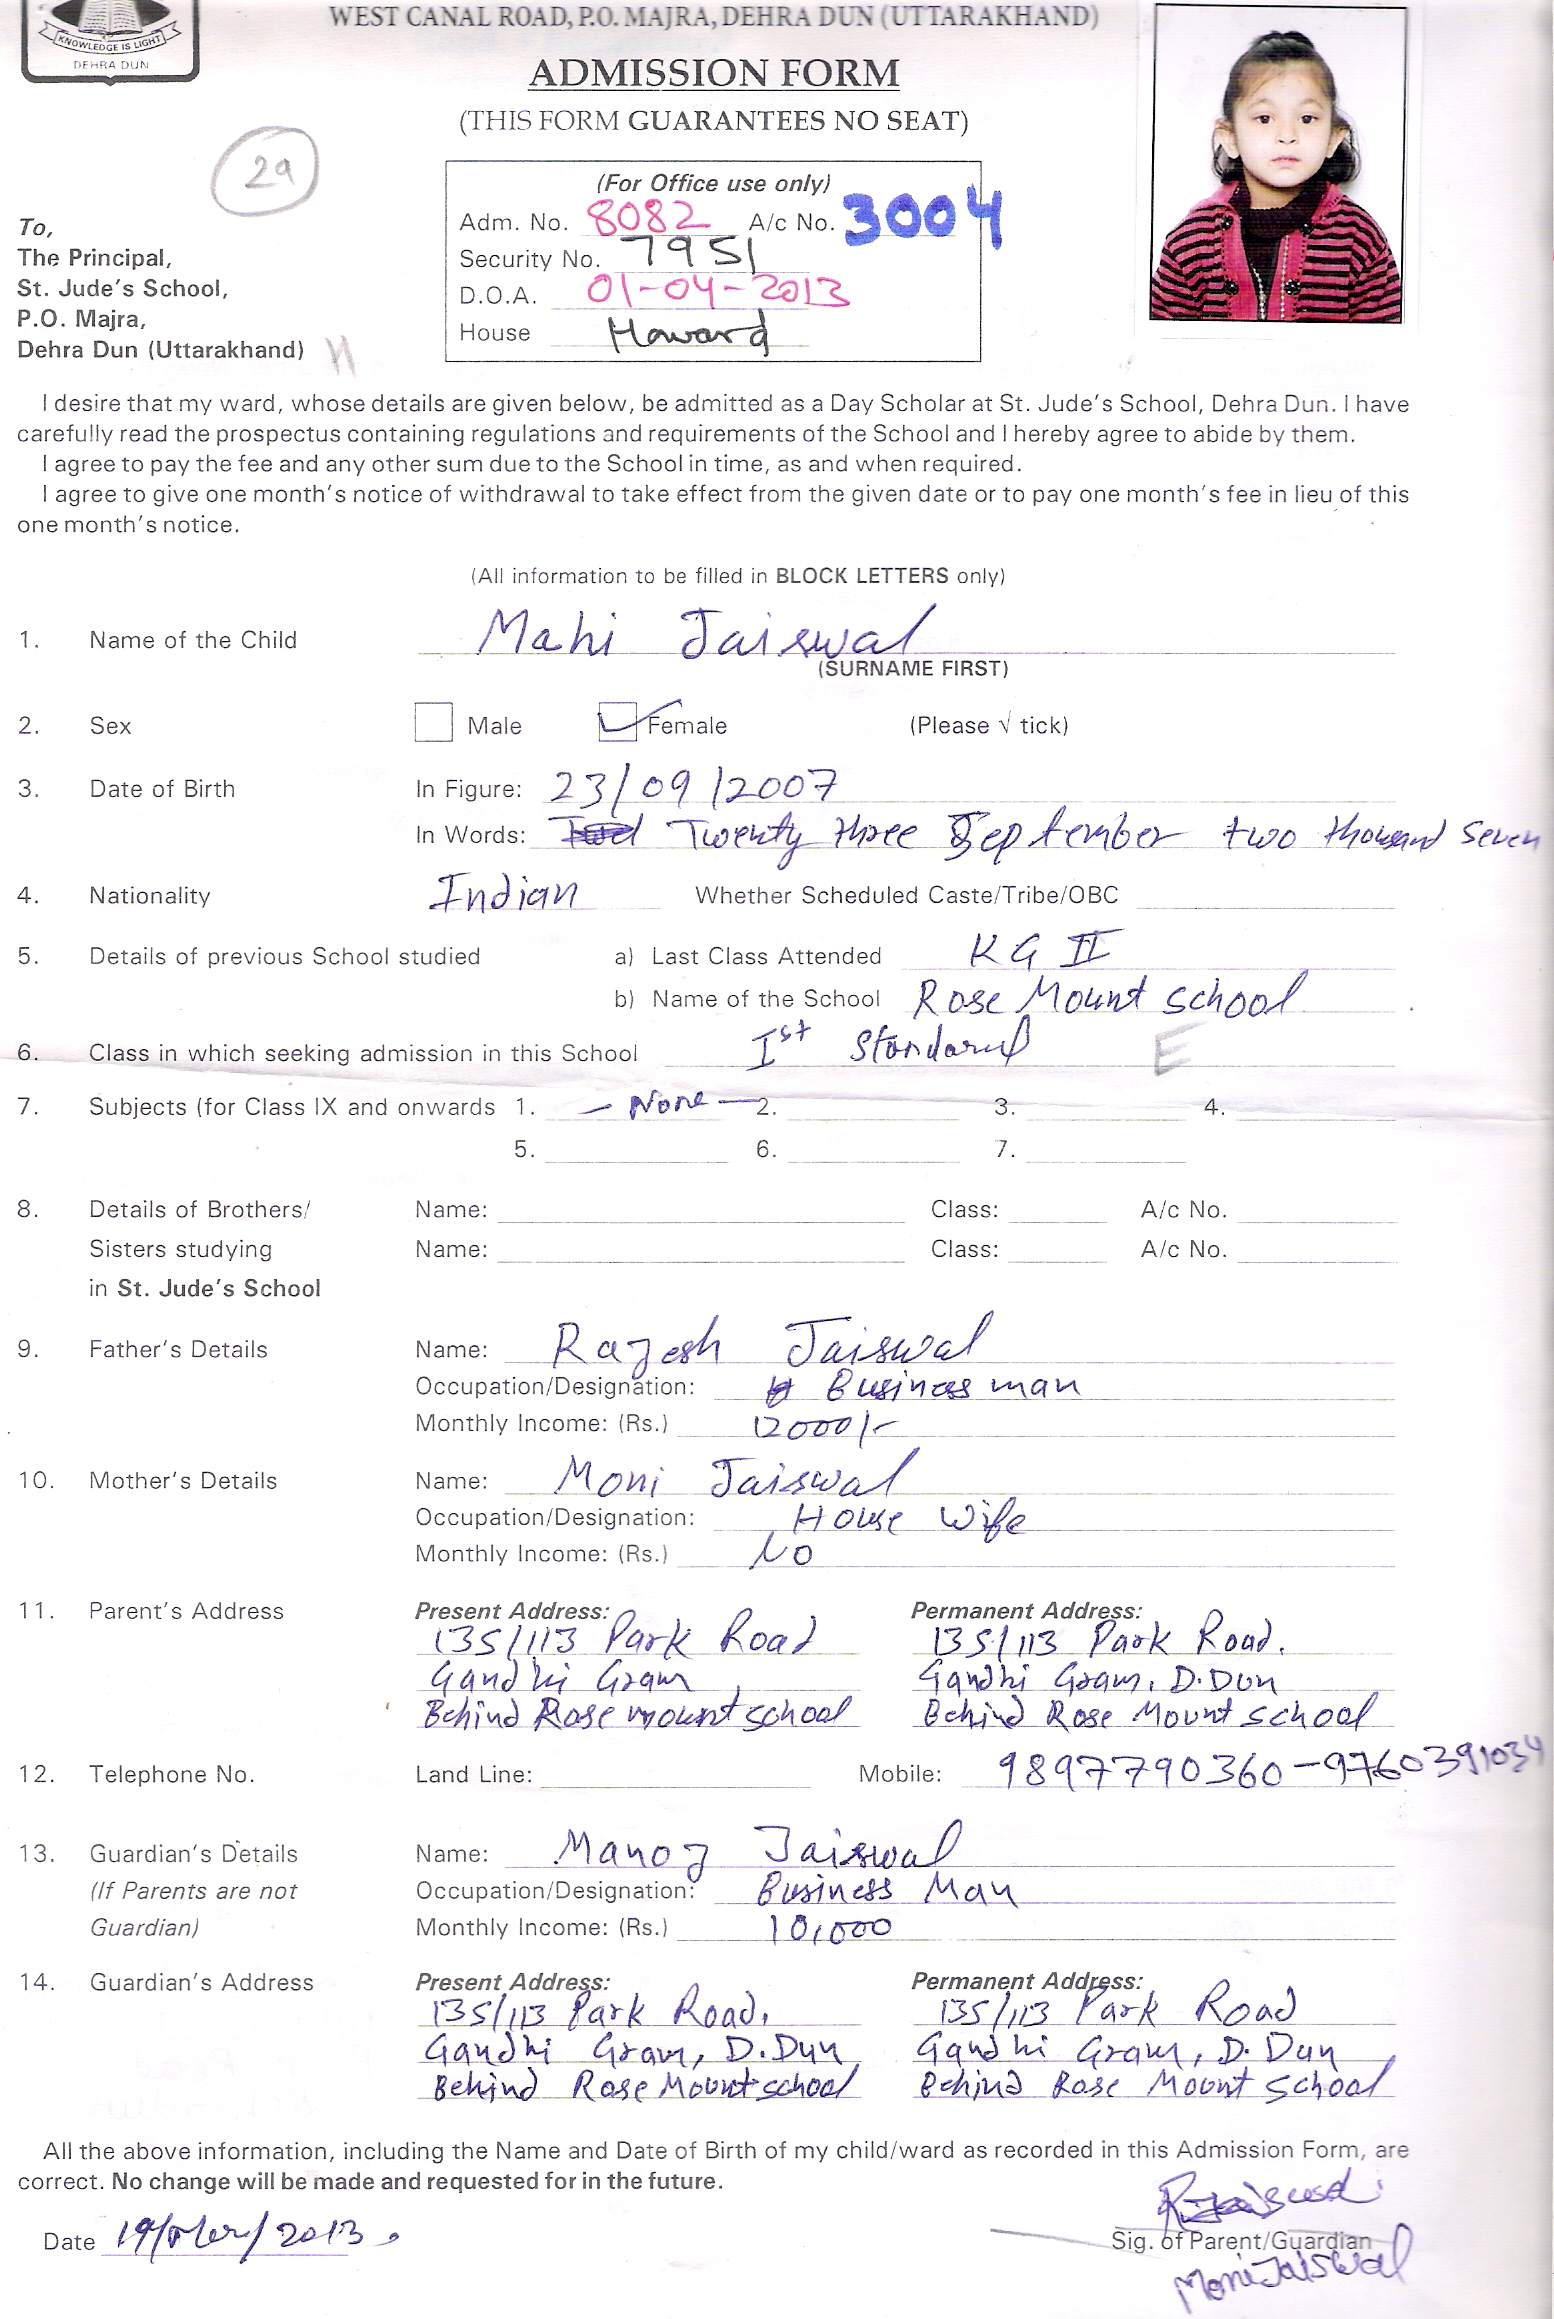 WEST CANAL ROAD, P.O. MAJRA, DEHRA DUN (UTTARAKHAND)
KNOWLEDGE IS LIGHT
DEHRA DUN
ADMISSION FORM
(THIS FORM GUARANTEES NO SEAT)
29
(For Office use only)
Adm. No. 8082 A/c No. 3004
Security No. 7951
D.O.A. 01-04-2013
House Howard
To,
The Principal,
St. Jude's School,
P.O. Majra,
Dehra Dun (Uttarakhand)
I desire that my ward, whose details are given below, be admitted as a Day Scholar at St. Jude's School, Dehra Dun. I have
carefully read the prospectus containing regulations and requirements of the School and I hereby agree to abide by them.
I agree to pay the fee and any other sum due to the School in time, as and when required.
I agree to give one month's notice of withdrawal to take effect from the given date or to pay one month's fee in lieu of this
one month's notice.
(All information to be filled in BLOCK LETTERS only)
1. Name of the Child Mahi Jaiswal
(SURNAME FIRST)
2. Sex Male Female (Please √ tick)
3. Date of Birth In Figure: 23/09/2007
In Words: Twenty three September two thousand Seven
4. Nationality Indian Whether Scheduled Caste/Tribe/OBC
5. Details of previous School studied a) Last Class Attended KG II
b) Name of the School Rose Mount School
6. Class in which seeking admission in this School Ist Standard E
7. Subjects (for Class IX and onwards 1. - None - 2. 3. 4.
5. 6. 7.
8. Details of Brothers/ Name: Class: A/c No.
Sisters studying Name: Class: A/c No.
in St. Jude's School
9. Father's Details Name: Rajesh Jaiswal
Occupation/Designation: Business man
Monthly Income: (Rs.) 12000/-
10. Mother's Details Name: Moni Jaiswal
Occupation/Designation: House Wife
Monthly Income: (Rs.) No
11. Parent's Address Present Address: Permanent Address:
135/113 Park Road 135/113 Park Road.
Gandhi Gram Gandhi Gram, D.Dun
Behind Rose mount school Behind Rose Mount School
12. Telephone No. Land Line: Mobile: 9897790360-9760391034
13. Guardian's Details Name: Manoj Jaiswal
(If Parents are not Occupation/Designation: Business Man
Guardian) Monthly Income: (Rs.) 10,000
14. Guardian's Address Present Address: Permanent Address:
135/113 Park Road, 135/113 Park Road
Gandhi Gram, D.Dun Gandhi Gram, D.Dun
Behind Rose Mount school Behind Rose Mount School
All the above information, including the Name and Date of Birth of my child/ward as recorded in this Admission Form, are
correct. No change will be made and requested for in the future.
Date 19/Mar/2013.
Sig. of Parent/Guardian
Moni Jaiswal